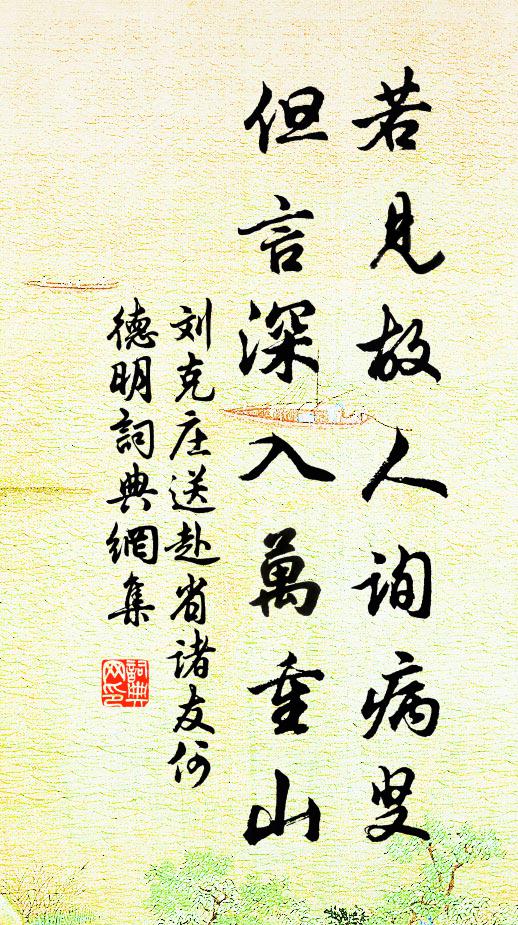 若見故人詢病叟
但言深入萬重山
刘克庄送赴省诸友何
德明詞典網集
詞典网印